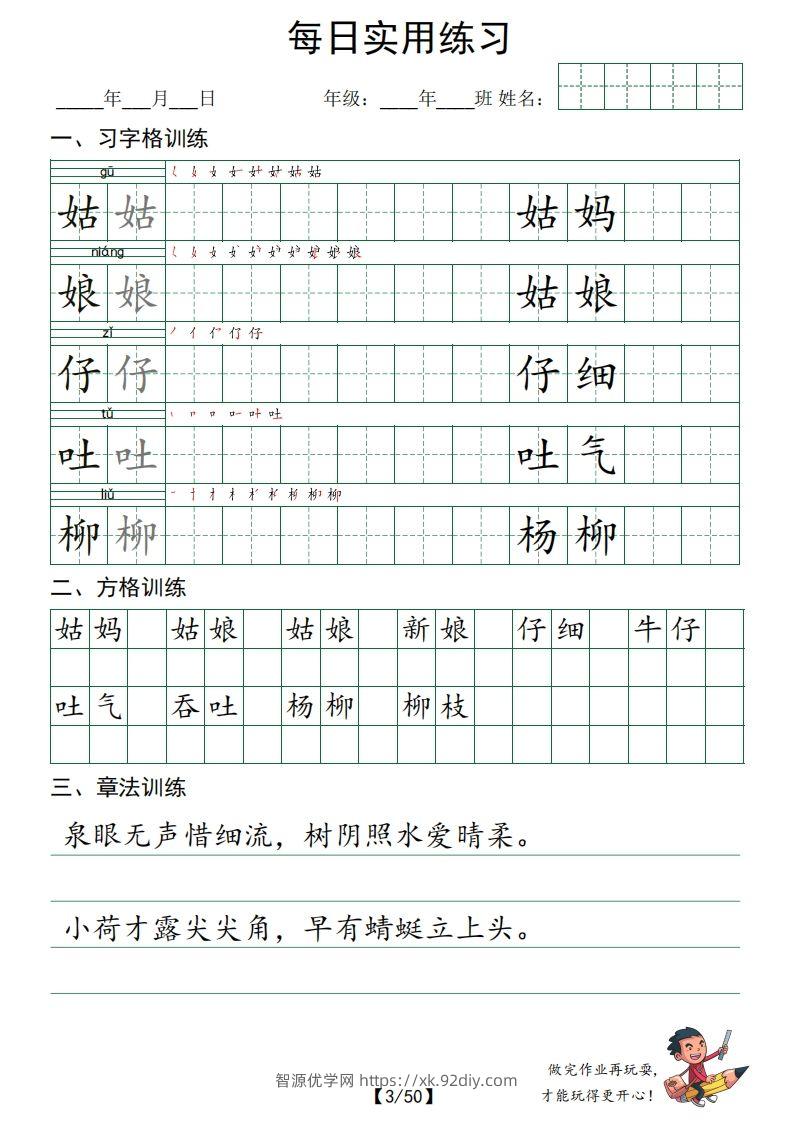 每日实用练习
_____年___月___日 年级：____年____班 姓名：
一、习字格训练
gū
姑 姑 姑 妈
niáng
娘 娘 姑 娘
zǐ
仔 仔 仔 细
tǔ
吐 吐 吐 气
liǔ
柳 柳 杨 柳
二、方格训练
姑妈 姑娘 姑娘 新娘 仔细 牛仔
吐气 吞吐 杨柳 柳枝
三、章法训练
泉眼无声惜细流，树阴照水爱晴柔。
小荷才露尖尖角，早有蜻蜓立上头。
做完作业再玩耍，
才能玩得更开心！
智源优学网 https://xk.92diy.com
【3/50】